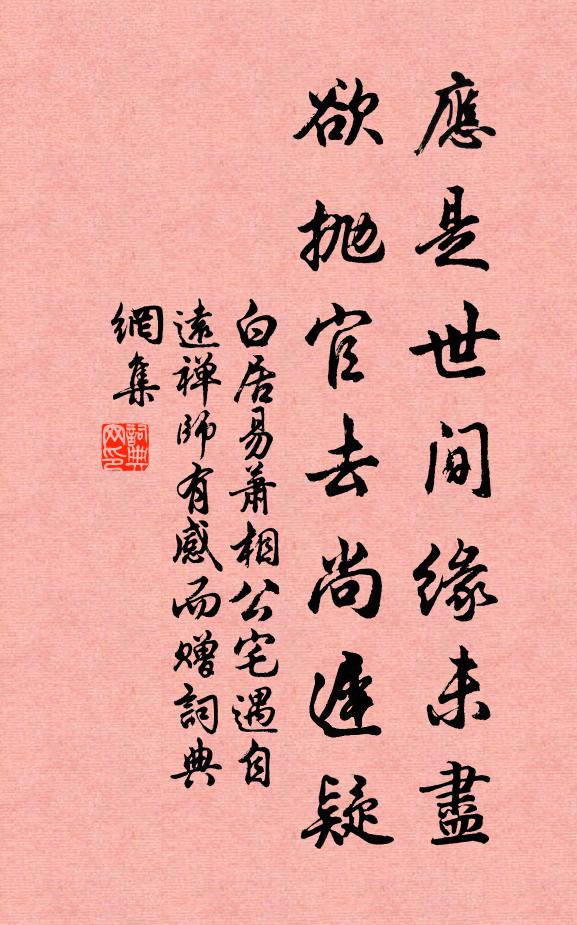 應是世間緣未盡
欲抛官去尚遲疑
白居易蕭相公宅遇自
遠禅師有感而贈詞典
網集
詞典
网印